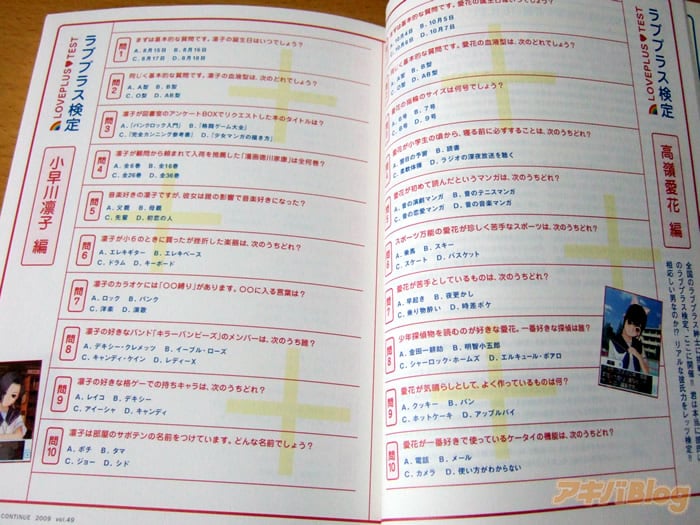 ラブプラス検定
LOVEPLUS♥TEST
小早川凛子 編
問1
まずは基本的な質問です。凛子の誕生日はいつでしょう？
A. 8月15日 B. 8月16日
C. 8月17日 D. 8月18日
問2
同じく基本的な質問です。凛子の血液型は、次のどれでしょう？
A. A型 B. B型
C. O型 D. AB型
問3
凛子が図書室のアンケートBOXでリクエストした本のタイトルは？
A.「パンクロック入門」 B.「格闘ゲーム大全」
C.「完全カンニング参考書」 D.「少女マンガの描き方」
問4
凛子が顧問から頼まれて入荷を推薦した「漫画徳川家康」は全何巻？
A. 全6巻 B. 全16巻
C. 全26巻 D. 全36巻
問5
音楽好きの凛子ですが、彼女は誰の影響で音楽好きになった？
A. 父親 B. 母親
C. 先輩 D. 初恋の人
問6
凛子が小6のときに買ったが挫折した楽器は、次のうちどれ？
A. エレキギター B. エレキベース
C. ドラム D. キーボード
問7
凛子のカラオケには「○○縛り」があります。○○に入る言葉は？
A. ロック B. パンク
C. 洋楽 D. 演歌
問8
凛子の好きなバンド「キラーバンビーズ」のメンバーは、次のうち誰？
A. デキシー・クレメッツ B. イーブル・ローズ
C. キャンディ・ケイン D. レディーX
問9
凛子の好きな格ゲーでの持ちキャラは、次のうちどれ？
A. レイコ B. デキシー
C. アイーシャ D. キャンディ
問10
凛子は部屋のサボテンの名前をつけています。どんな名前でしょう？
A. ポチ B. タマ
C. ジョー D. シド
CONTINUE 2009 vol.49
ラブプラス検定
LOVEPLUS♥TEST
高嶺愛花 編
まずは基本的な質問です。愛花の誕生日はいつでしょう？
A. 10月4日 B. 10月5日
C. 10月6日 D. 10月7日
同じく基本的な質問です。愛花の血液型は、次のどれでしょう？
A. A型 B. B型
C. O型 D. AB型
愛花の指輪のサイズは何号でしょう？
A. 6号 B. 7号
C. 8号 D. 9号
愛花が小学生の頃から、寝る前に必ずすることは、次のうちどれ？
A. 翌日の予習 B. 読書
C. 柔軟体操 D. ラジオの深夜放送を聴く
愛花が初めて読んだというマンガは、次のうちどれ？
A. 昔の演劇マンガ B. 昔のテニスマンガ
C. 昔の恋愛マンガ D. 昔の音楽マンガ
問6
スポーツ万能の愛花が珍しく苦手なスポーツは、次のうちどれ？
A. 乗馬 B. スキー
C. スケート D. バスケット
問7
愛花が苦手としているものは、次のうちどれ？
A. 早起き B. 夜更かし
C. 乗り物酔い D. 時差ボケ
問8
少年探偵物を読むのが好きな愛花。一番好きな探偵は誰？
A. 金田一耕助 B. 明智小五郎
C. シャーロック・ホームズ D. エルキュール・ポアロ
問9
愛花が気晴らしとして、よく作っているものは何？
A. クッキー B. パン
C. ホットケーキ D. アップルパイ
問10
愛花が一番好きで使っているケータイの機能は、次のうちどれ？
A. 電話 B. メール
C. カメラ D. 使い方がわからない
アキバBlog